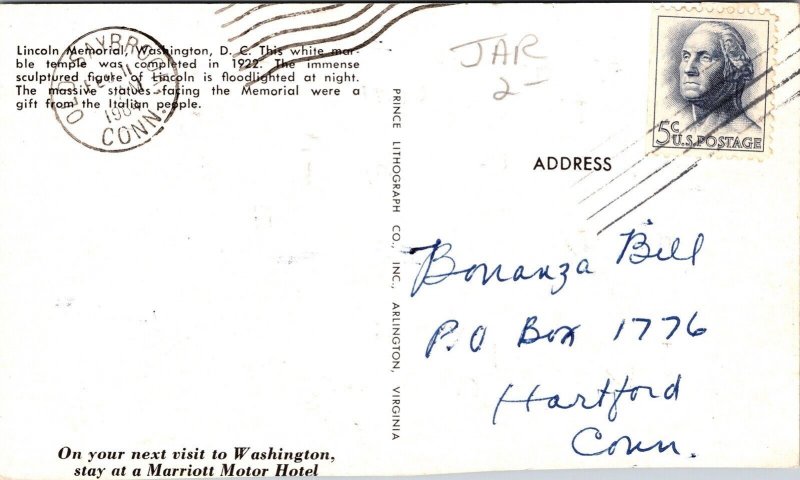 Lincoln Memorial, Washington, D. C. This white mar-
ble temple was completed in 1922. The immense
sculptured figure of Lincoln is floodlighted at night.
The massive statues facing the Memorial were a
gift from the Italian people.
OLD SAYBROOK
CONN.
JAR
2-
5c
U.S. POSTAGE
PRINCE LITHOGRAPH CO., INC., ARLINGTON, VIRGINIA
ADDRESS
Bonanza Bill
P.O Box 1776
Hartford
Conn.
On your next visit to Washington,
stay at a Marriott Motor Hotel